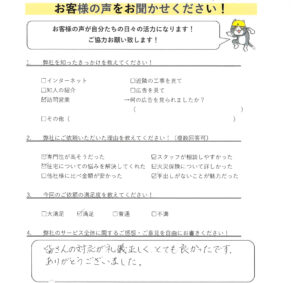 お客様の声をお聞かせください!
お客様の声が自分たちの日々の活力になります!
ご協力お願い致します!
1. 弊社を知ったきっかけを教えてください!
□インターネット □近隣の工事を見て
□知人の紹介 □広告を見て
☑訪問営業 →何の広告を見られましたか?
( )
□その他( )
2. 弊社にご依頼いただいた理由を教えてください!(複数回答可)
☑専門性が高そうだった ☑スタッフが相談しやすかった
☑住宅についての悩みを解決してくれた ☑火災保険について詳しかった
□他社様に比べ金額が安かった ☑手出しがないことが魅力だった
3. 今回のご依頼の満足度を教えてください!
□大満足 ☑満足 □普通 □不満
4. 弊社のサービス全体に関するご感想・ご意見を自由にお書きください!
皆さんの対応が礼義正しく、とても良かったです。
ありがとうございました。